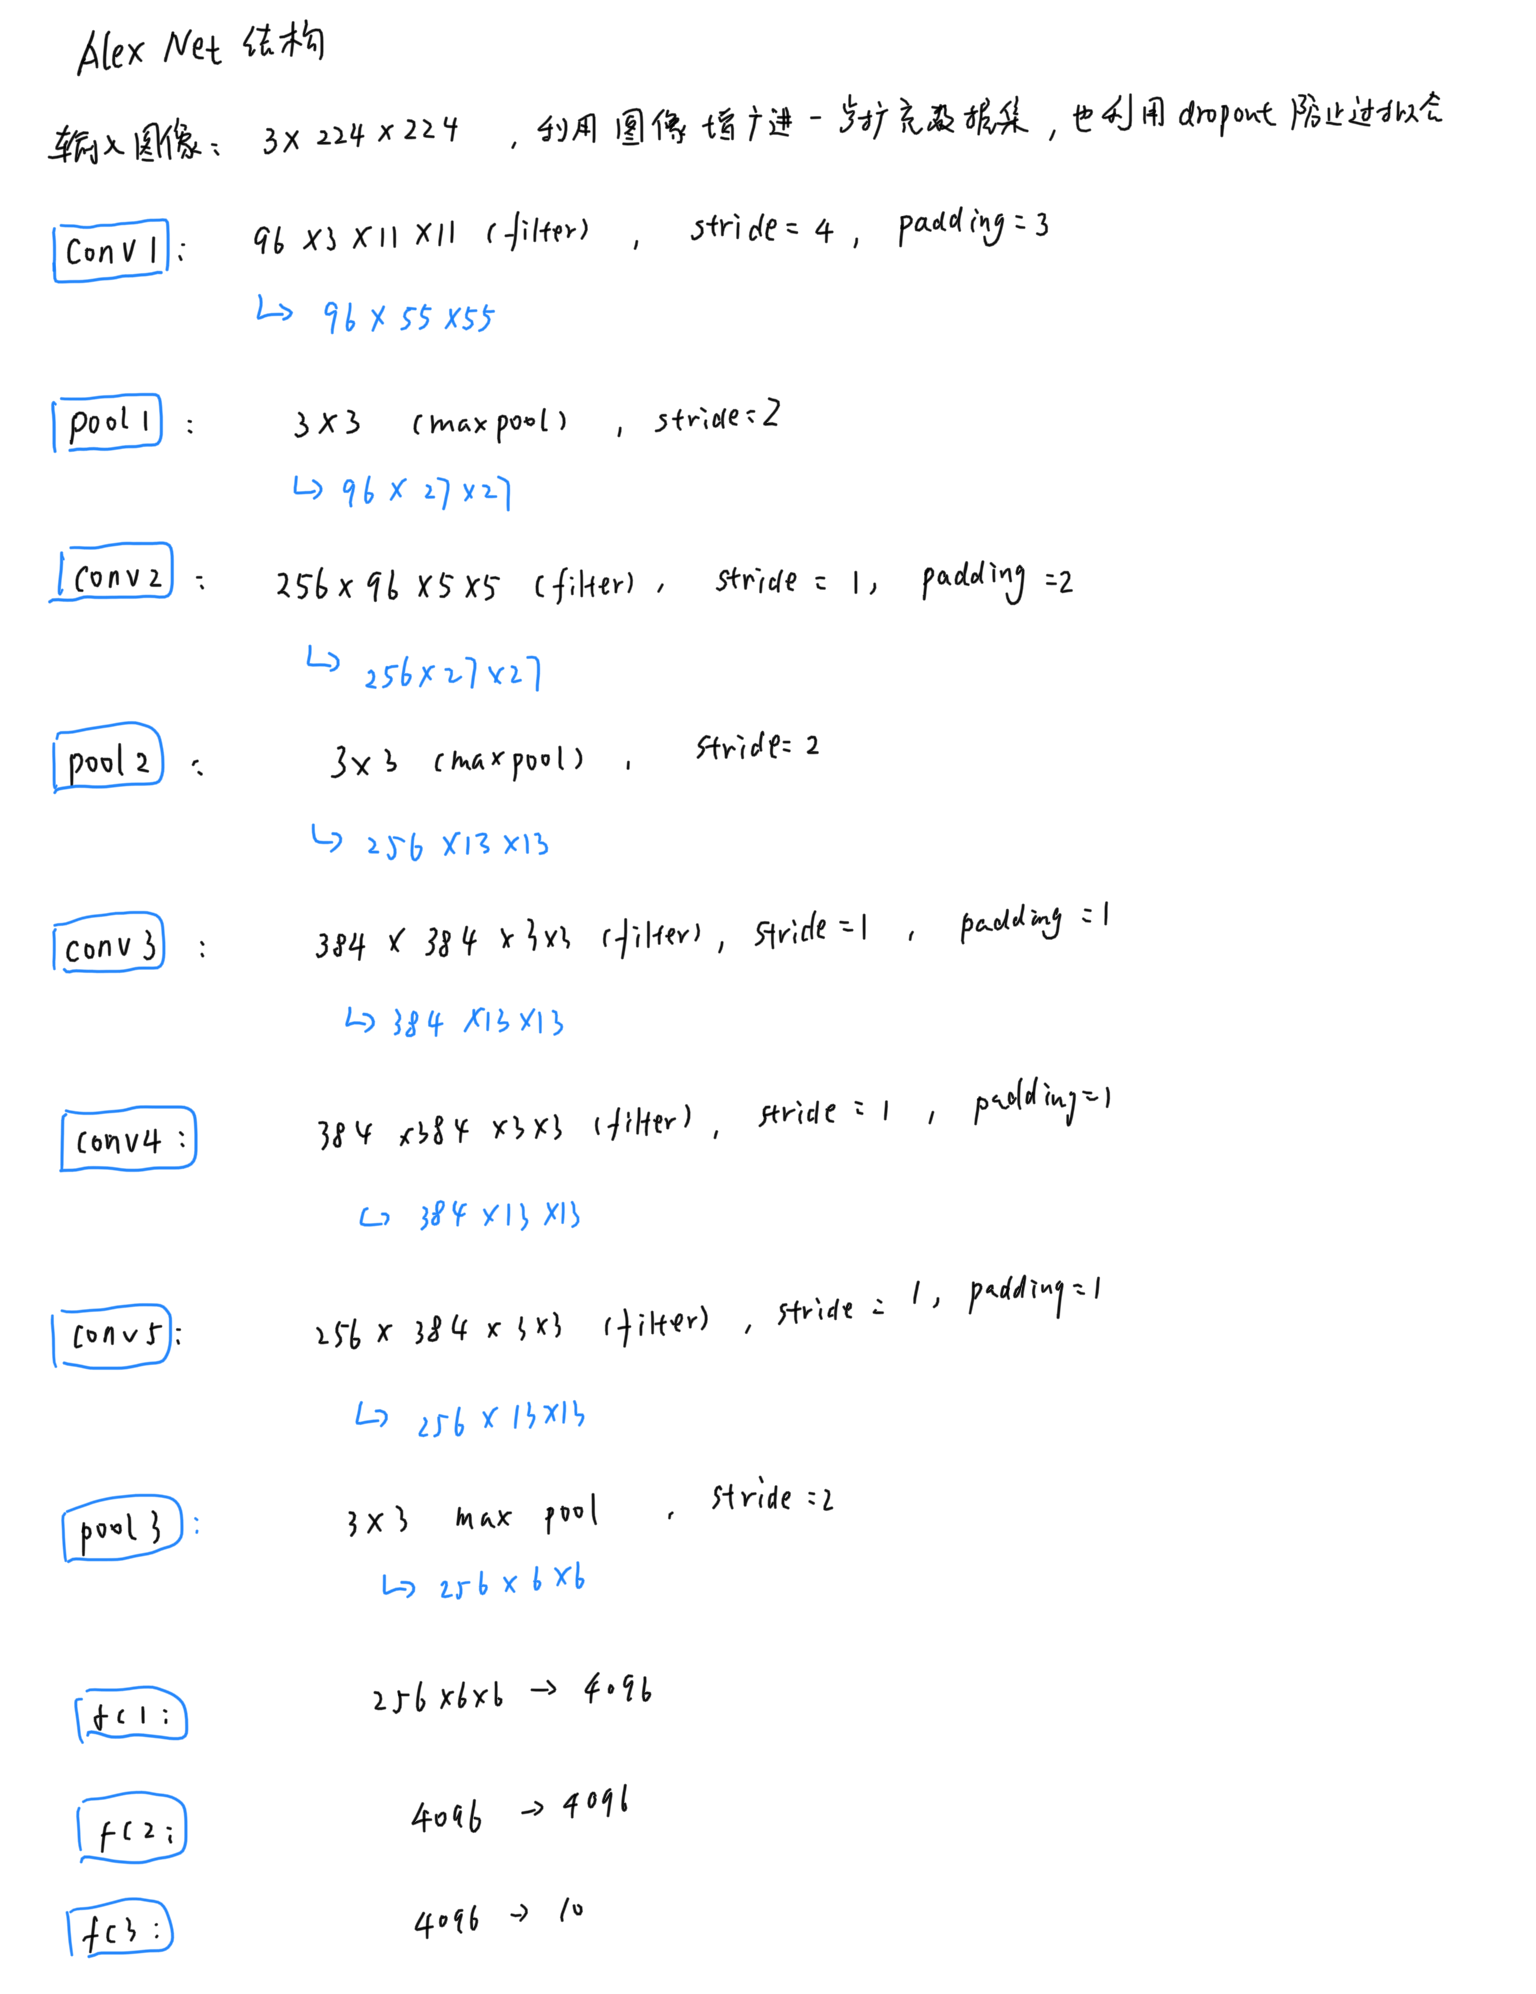 AlexNet 结构
输入图像： 3×224×224 ，利用图像增广进一步扩充数据集，也利用dropout防止过拟合
Conv1： 96×3×11×11 (filter) ， stride=4， padding=3
↳ 96×55×55
pool1： 3×3 (maxpool) ， stride=2
↳ 96×27×27
Conv2： 256×96×5×5 (filter)， stride=1， padding=2
↳ 256×27×27
pool2： 3×3 (maxpool) ， stride=2
↳ 256×13×13
conv3： 384×384×3×3 (filter)， stride=1， padding=1
↳ 384×13×13
conv4： 384×384×3×3 (filter)， stride=1， padding=1
↳ 384×13×13
conv5： 256×384×3×3 (filter) ， stride=1， padding=1
↳ 256×13×13
pool3： 3×3 max pool ， stride=2
↳ 256×6×6
fc1： 256×6×6 → 4096
fc2： 4096 → 4096
fc3： 4096 → 10